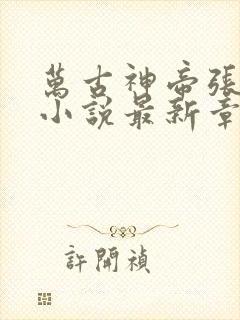 萬古神帝張
小說最新章
許開禎